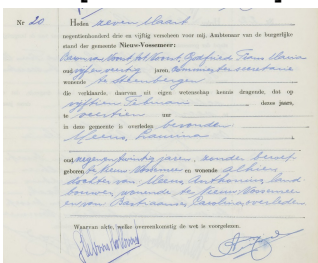 Nr 20 Heden zeven Maart
negentienhonderd drie en vijftig verscheen voor mij, Ambtenaar van de burgerlijke
stand der gemeente Nieuw-Vossemeer:
Godfried Frans Maria
oud jaren,
wonende te Steenbergen
die verklaarde, daarvan uit eigen wetenschap kennis dragende, dat op
vijftien Februari dezes jaars,
te veertien uur
in deze gemeente is overleden bevonden
Meeus, Laurina
oud negen en twintig jaren, zonder beroep
geboren te Nieuw Vossemeer en wonende alhier
dochter van Meeus Anthonius land-
bouwer, wonende te Nieuw Vossemeer
en van Bastiaansen Carolina, overleden
Waarvan akte, welke overeenkomstig de wet is voorgelezen.